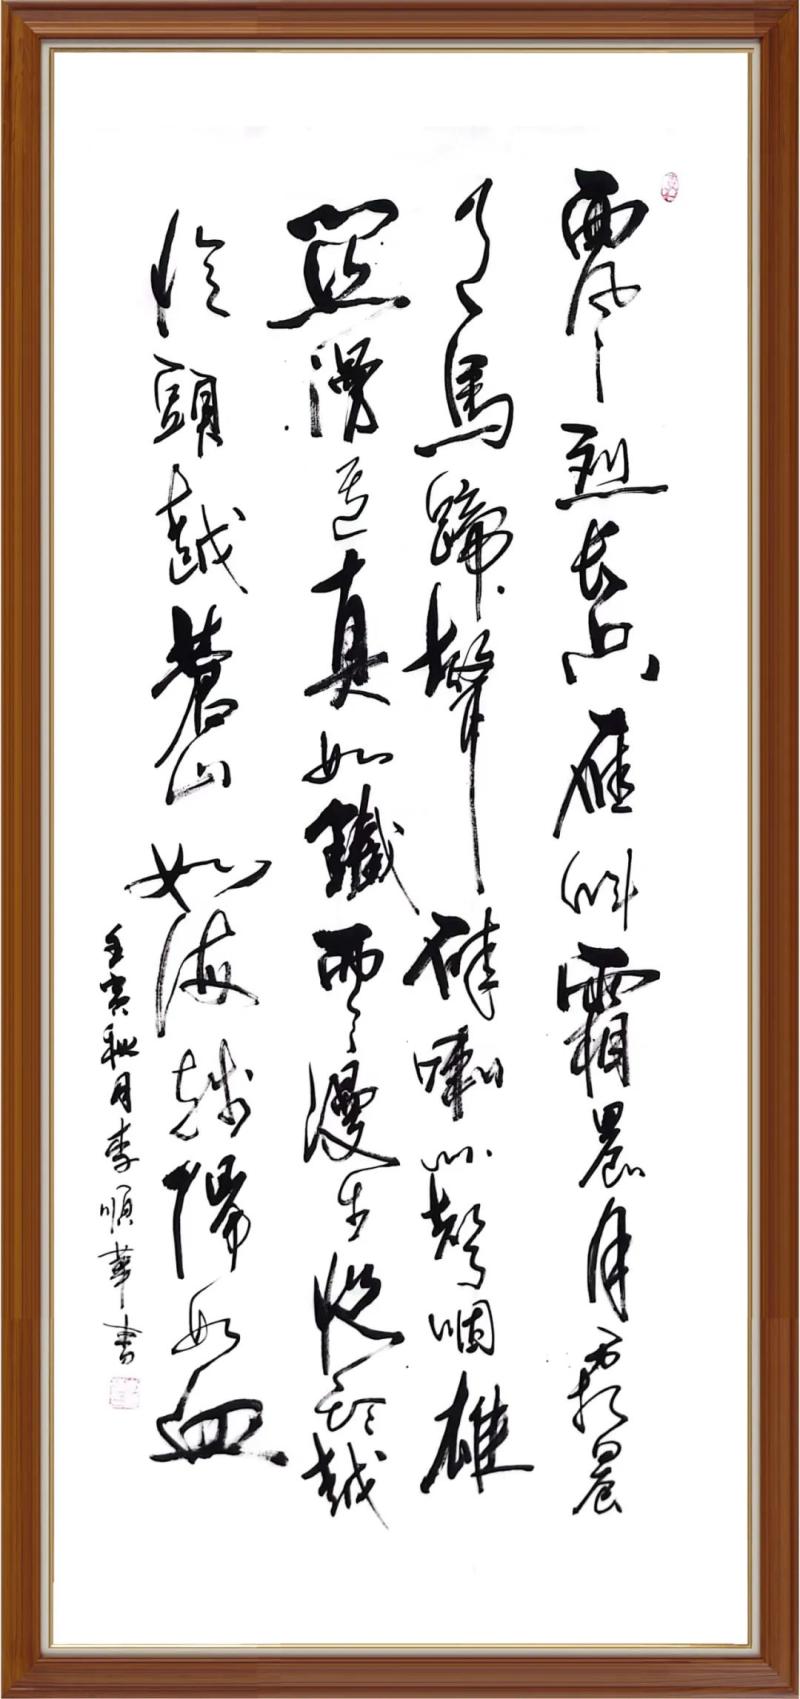 西风烈长空雁叫霜晨月霜晨
月馬蹄聲碎喇叭聲咽雄
關漫道真如鐵而今邁步從頭越
從頭越蒼山如海殘陽如血
壬寅秋月李順華書